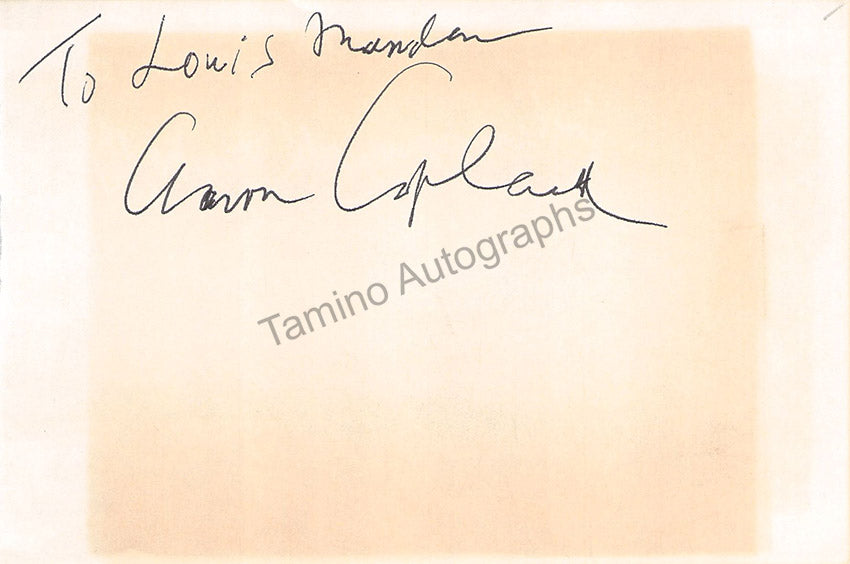 To Louis
Aaron Copland
Tamino Autographs